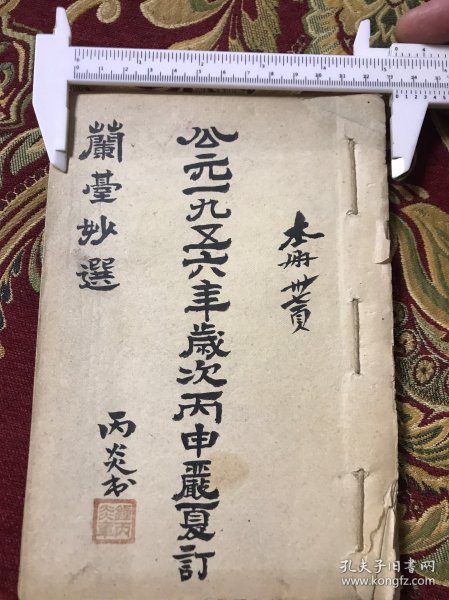 本册頁
公元一九五六年歲次丙申嚴夏訂
蘭臺妙選
丙炎
丙炎章
孔夫子旧书网
www.kongfz.com